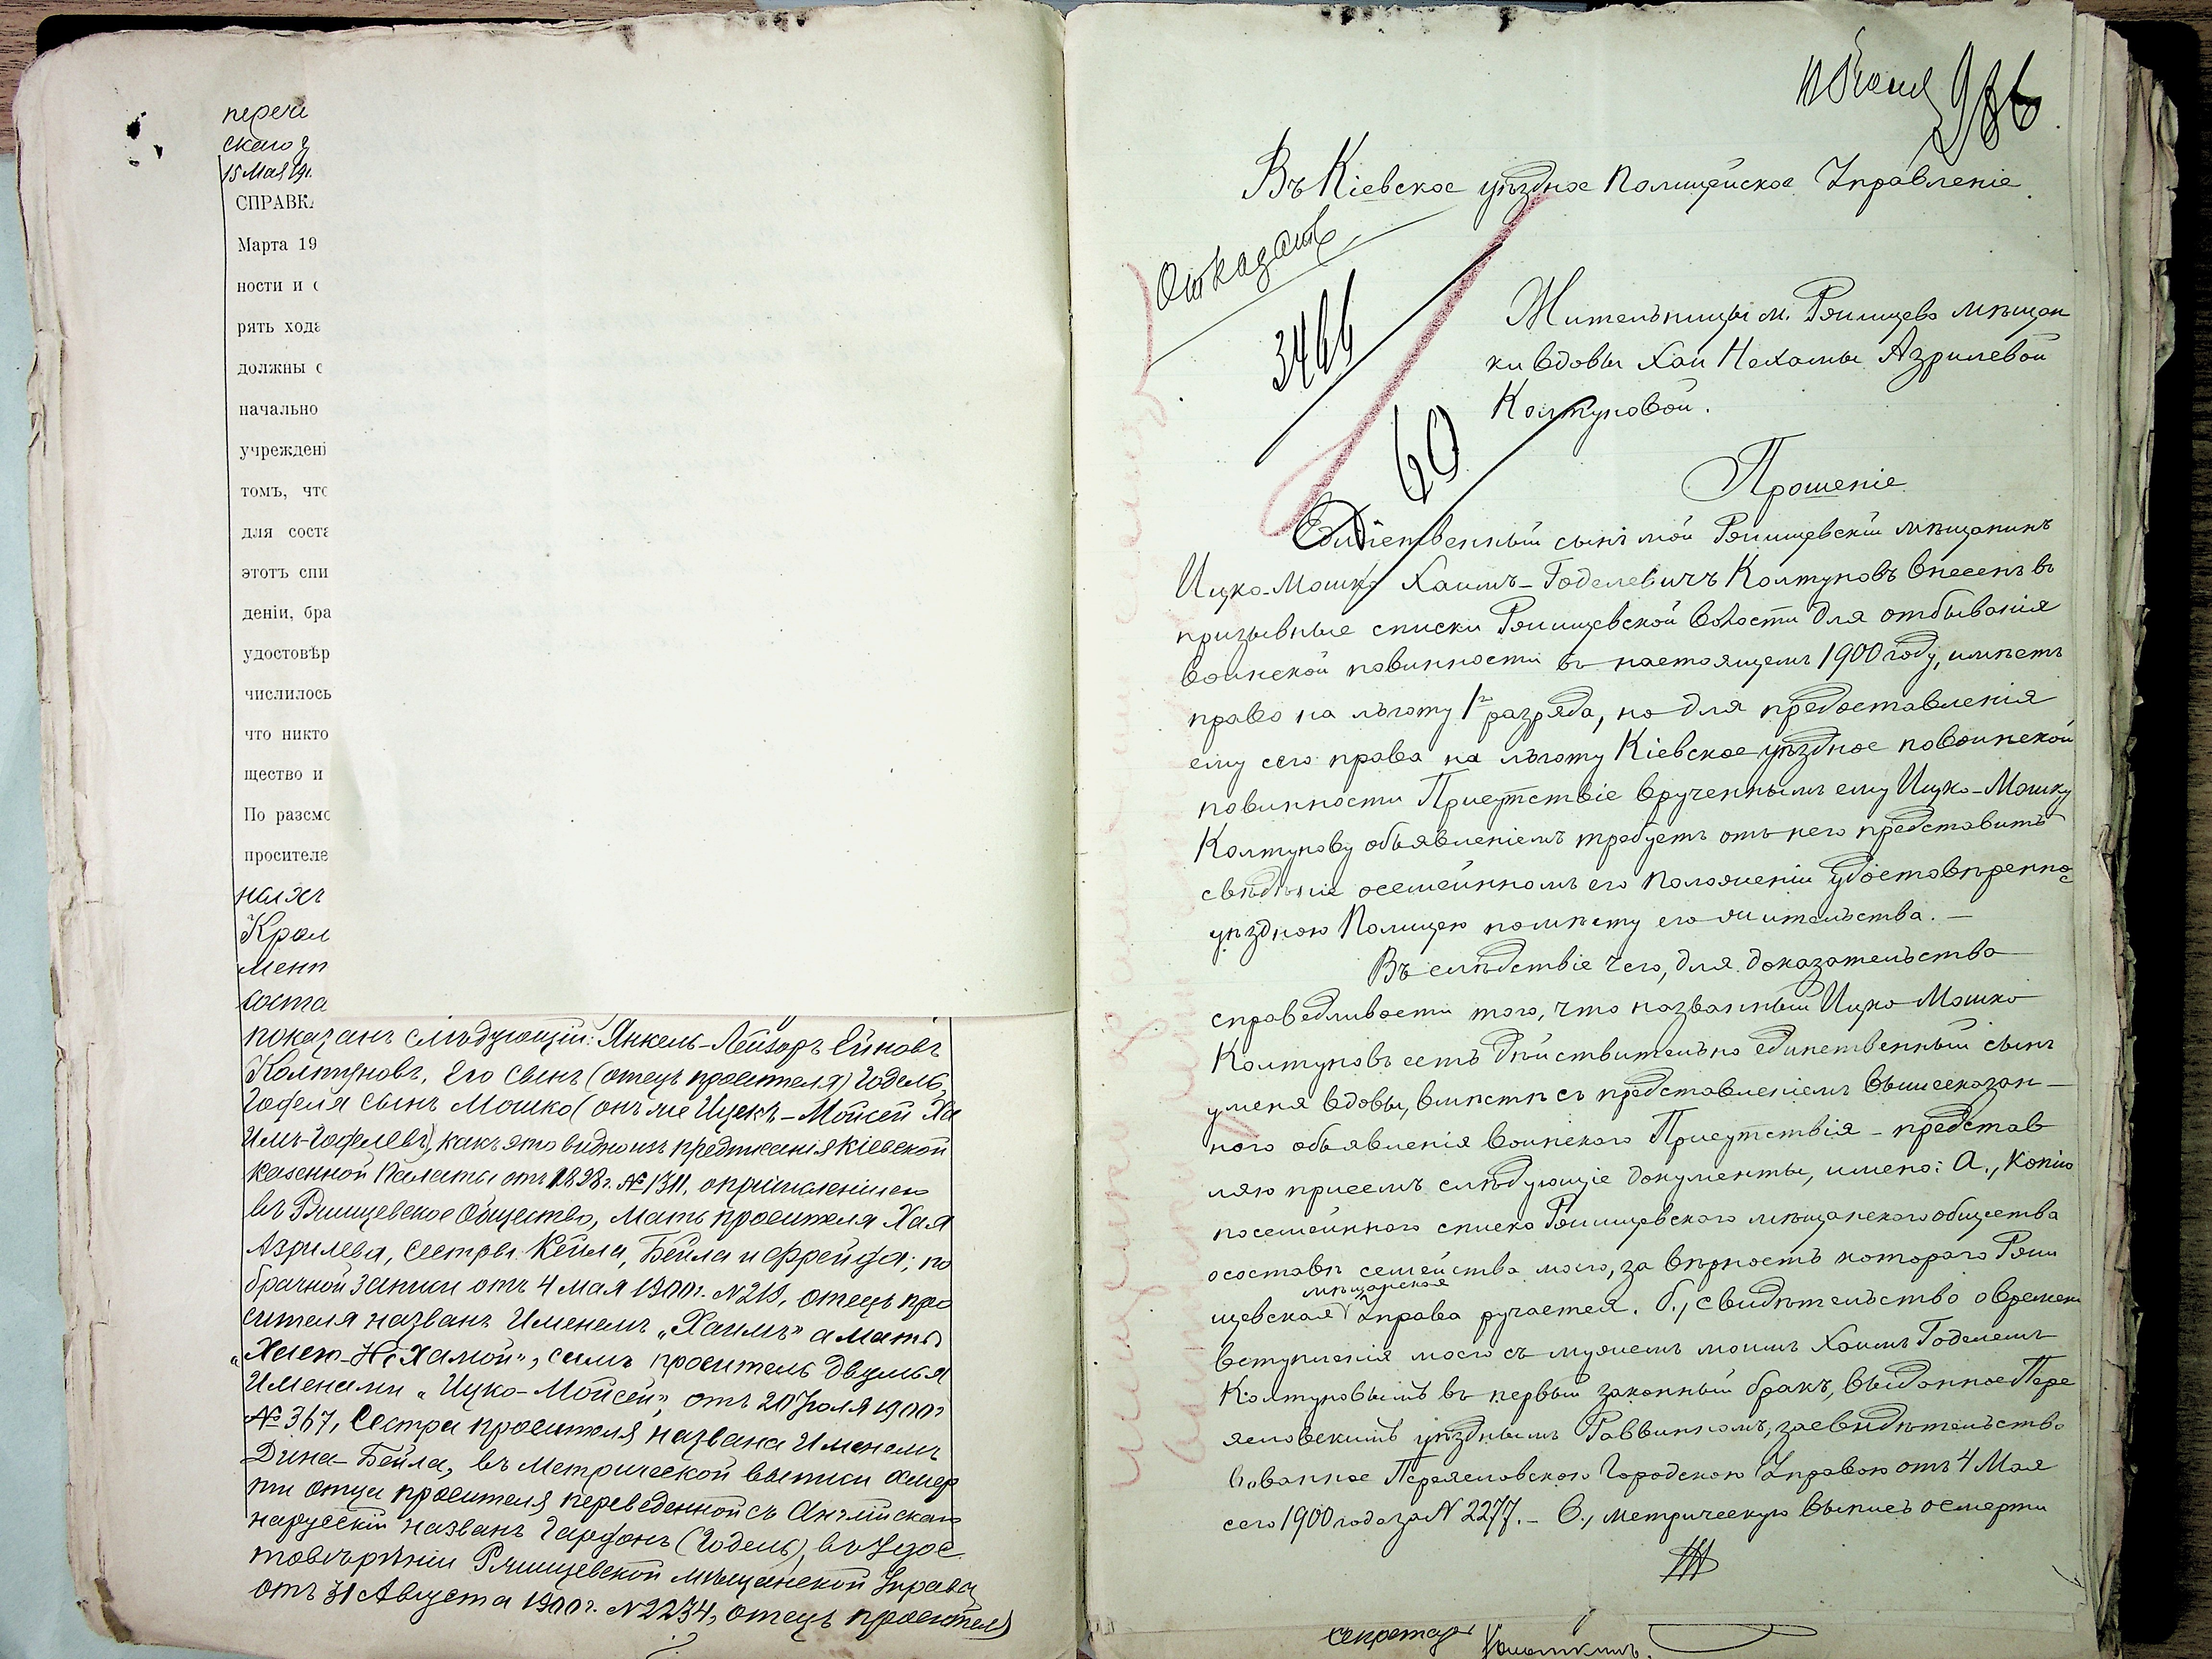 перечи
скаго у
15 Мая 19
СПРАВКА
Марта 19
ности и с
рять хода
должны с
начально
учрежденi
томъ, что
для соста
этотъ спи
денiи, бра
удостовѣр
числилось
что никто
щество и
По разсмо
просителе
Крол
мент
соста
показанъ слѣдующiй: Янкель-Лейзоръ Ейновъ
Колтуновъ, его сынъ (отецъ просителя) Годель,
Годеля сынъ Мошко (онъ же Ицекъ-Мойсей Ха
имъ-Годелевъ), какъ это видно изъ предписанiя Кiевской
казенной Палаты отъ 1898 г. № 1311, о причисленiи его
въ Ржищевское Общество, мать просителя Хая
Азрилева, сестры Кейла, Бейла и Фрейда; по
брачной записи отъ 4 мая 1900 г. № 219, отецъ про
сителя названъ Именемъ „Хаимъ" а мать
„Хаей-Нехамой", самъ проситель двумья
Именами „Ицко-Мойсей", отъ 20 Iюля 1900 г
№ 367, сестра просителя названа Именемъ
Дина-Бейла, въ метрической выписи о смер
ти отца просителя переведенной съ Англiйскаго
на русскiй названъ Гардонъ (Годель), въ Удос
товѣренiи Ржищевской мѣщанской Управы
отъ 31 Августа 1900 г. № 2234, отецъ просителя
986
Въ Кiевское уѣздное Полицейское Управленiе
Отказать
3466
Жительницы м. Ржищева мѣщан
ки вдовы Хаи Нехамы Азрилевой
Колтуновой.
60
Прошенiе
Единственный сынъ мой Ржищевскiй мѣщанинъ
Ицко-Мошко Хаимъ-Годелевичъ Колтуновъ внесенъ въ
призывные списки Ржищевской волости для отбыванiя
воинской повинности въ настоящемъ 1900 году, имѣетъ
право на льготу 1го разряда, но для предоставленiя
ему сего права на льготу Кiевское уѣздное по воинской
повинности Присутствiе врученнымъ ему Ицко-Мошку
Колтунову объявленiемъ требуетъ отъ него представить
свѣдѣнiе о семейномъ его положенiи удостовѣренное
уѣздною Полицею по мѣсту его жительства. —
Въ слѣдствiе чего, для доказательства
справедливости того, что названный Ицко Мошко
Колтуновъ есть дѣйствительно единственный сынъ
у меня вдовы, вмѣстѣ съ представленiемъ вышесказан-
ного объявленiя воинского Присутствiя - представ
ляю присемъ слѣдующiе документы, имено: А., копiю
посемейнного списка Ржищевского мѣщанского общества
о составѣ семейства моего, за вѣрность которого Ржи
мѣщанская
щевская Управа ручается. б., свидѣтельство о времени
вступленiя моего съ мужемъ моимъ Хаимъ Годелемъ
Колтуновымъ въ первый законный бракъ, выданное Пере
яславскимъ уѣзднымъ Раввиномъ, засвидѣтельство
ванное Переяславскою Городскою Управою отъ 4 Мая
сего 1900 года за № 2277. — В., метрическую выпись о смерти
секретарь